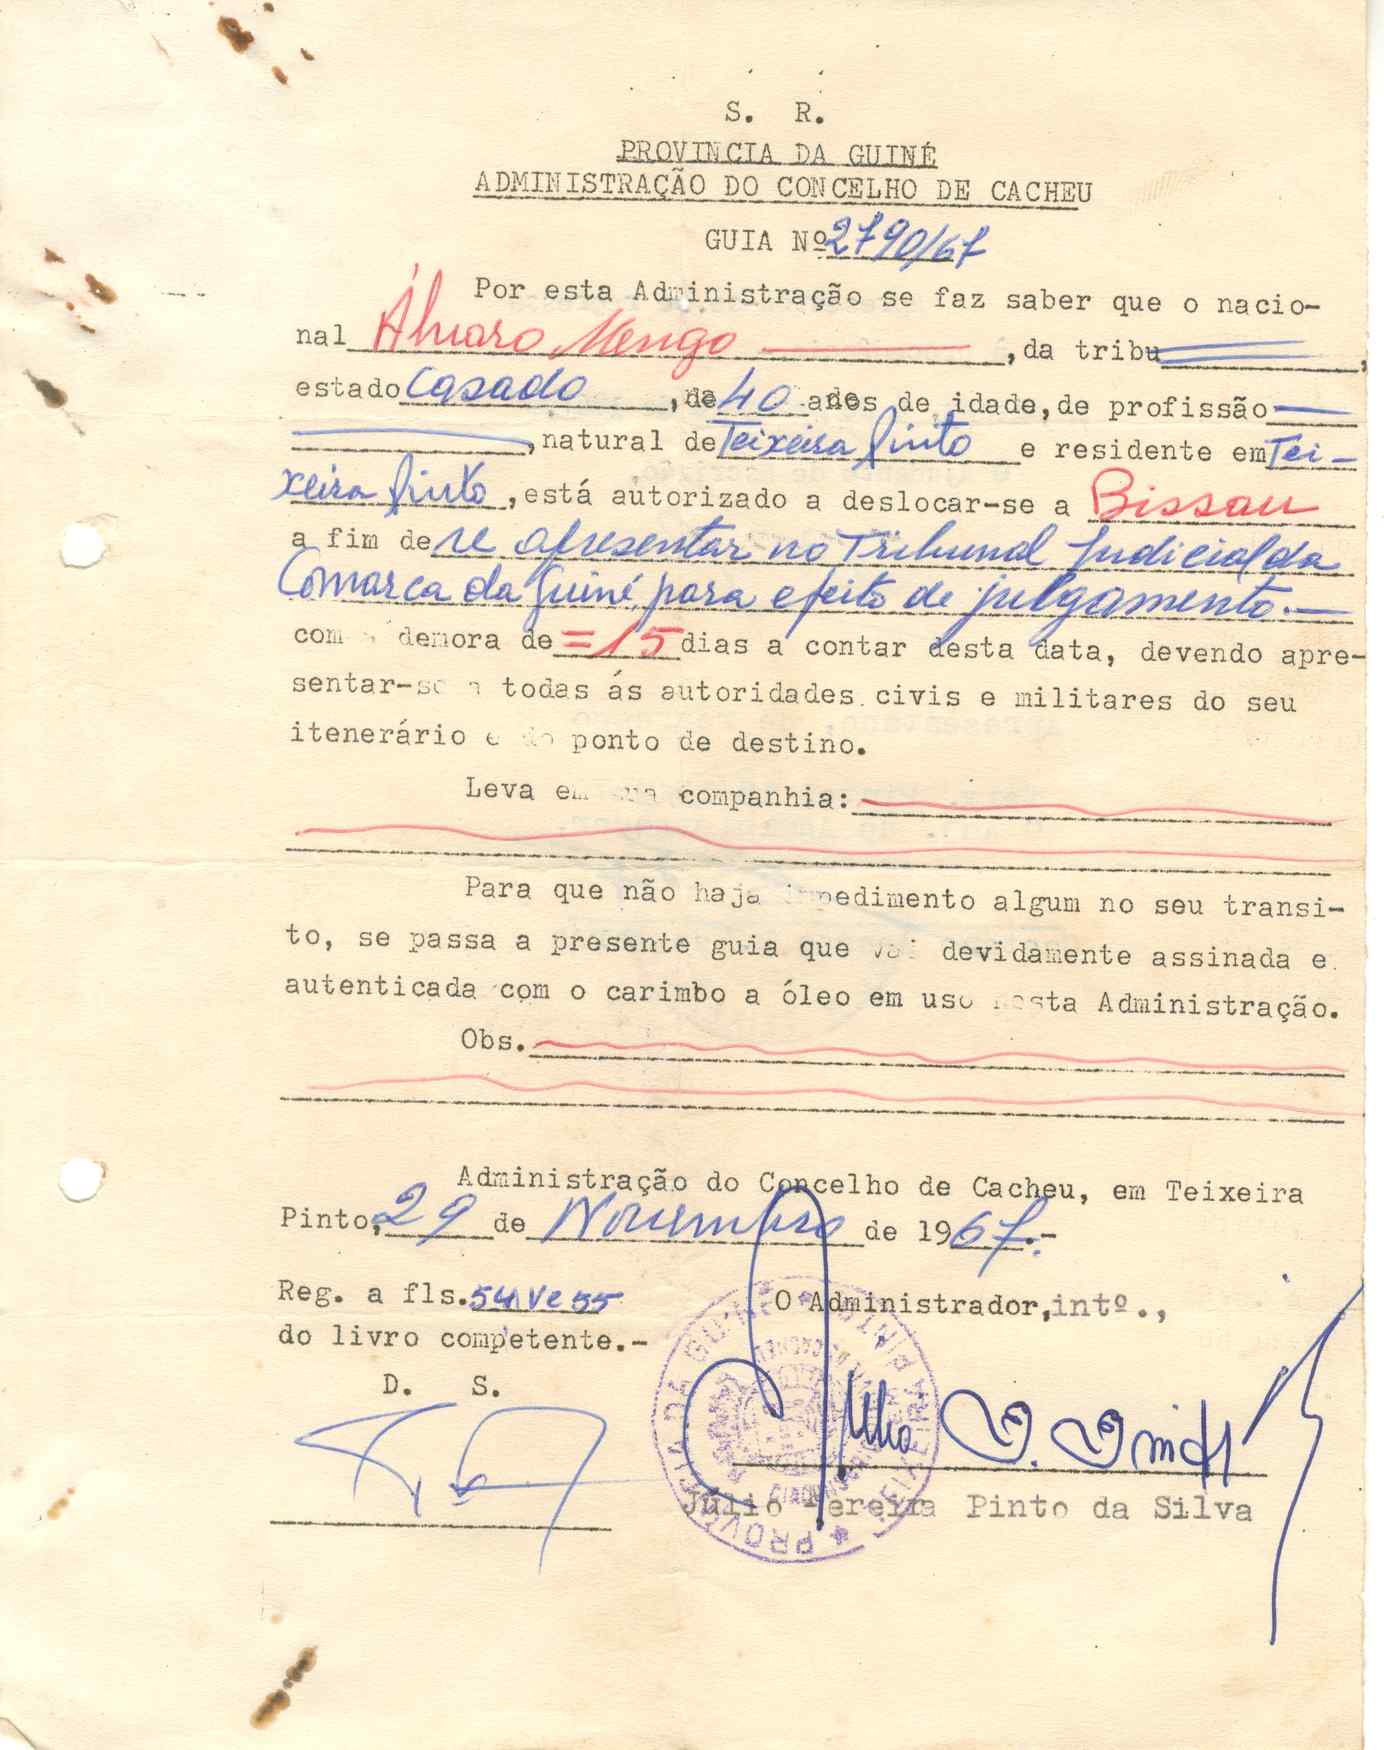 S. R.
PROVINCIA DA GUINÉ
ADMINISTRAÇÃO DO CONCELHO DE CACHEU
GUIA Nº 2790/67
Por esta Administração se faz saber que o nacio-
nal Álvaro Mengo, da tribu,
estado Casado, de 40 anos de idade, de profissão
, natural de Teixeira Pinto e residente em Tei-
xeira Pinto, está autorizado a deslocar-se a Bissau
a fim de se apresentar no Tribunal Judicial da
Comarca da Guiné, para efeito de julgamento.-
com a demora de =15 dias a contar desta data, devendo apre-
sentar-se a todas ás autoridades civis e militares do seu
itenerário e do ponto de destino.
Leva em sua companhia:
Para que não haja impedimento algum no seu transi-
to, se passa a presente guia que vai devidamente assinada e
autenticada com o carimbo a óleo em uso nesta Administração.
Obs.
Administração do Concelho de Cacheu, em Teixeira
Pinto, 29 de Novembro de 1967.-
Reg. a fls. 54v e 55
O Administrador, intº.,
do livro competente.-
D. S.
PROVÍNCIA DA GUINÉ
TEIXEIRA PINTO
Júlio Pereira Pinto da Silva